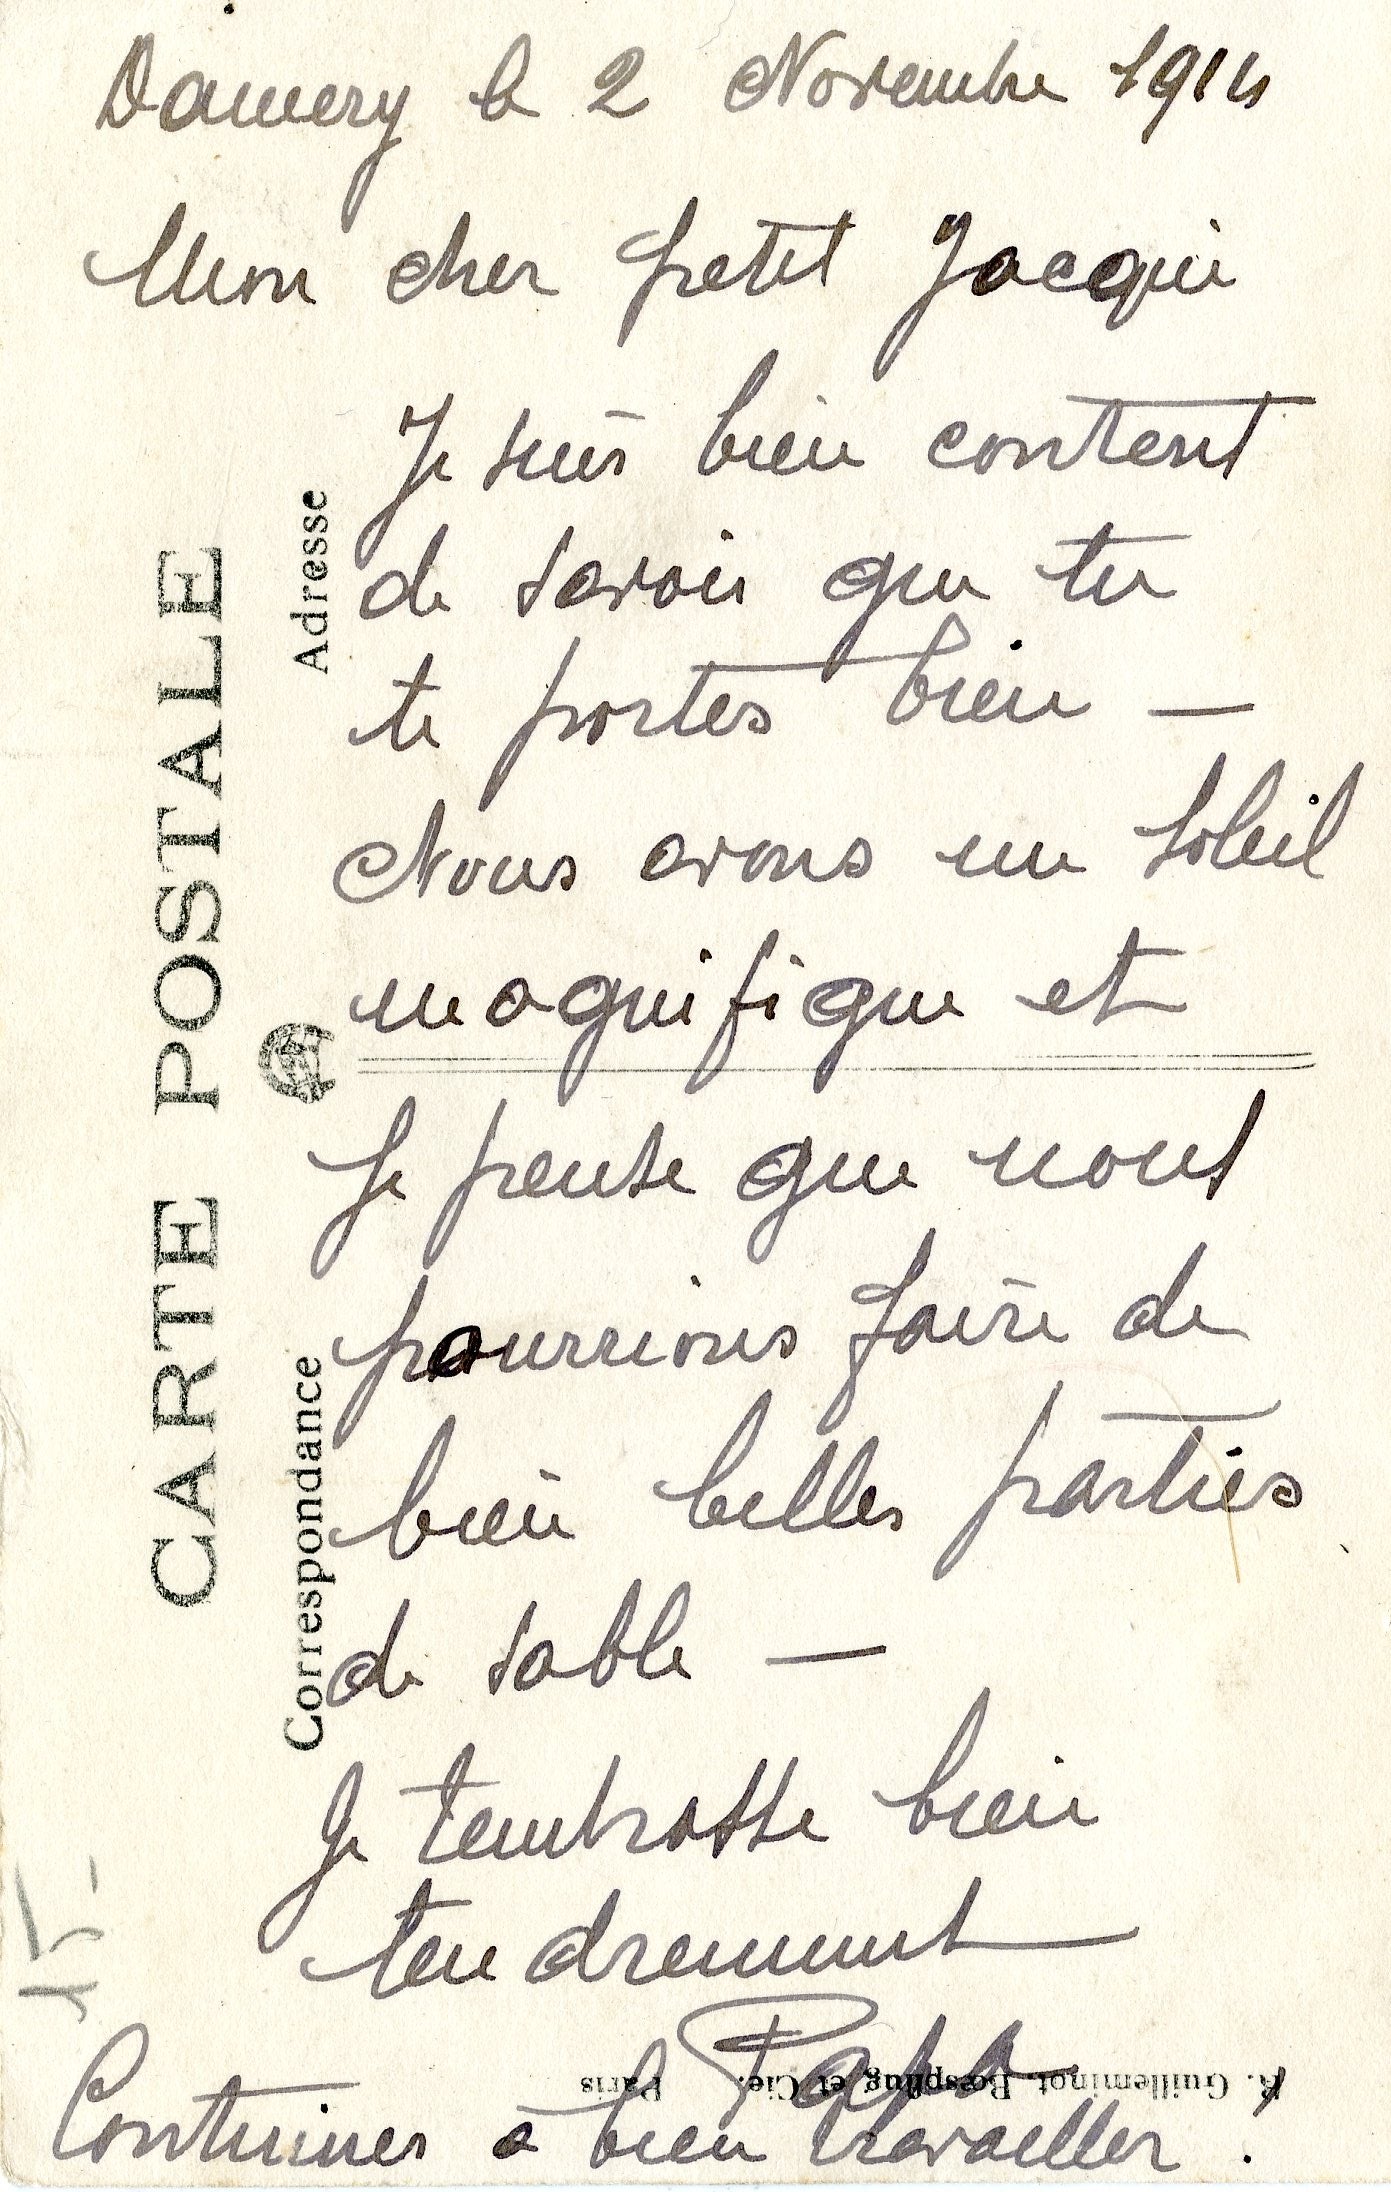 Damery le 2 Novembre 1914
Mon cher petit Jacqui
Je suis bien content
de savoir que tu
te portes bien –
Nous avons un soleil
magnifique et
Je pense que nous
pourrions faire de
bien belles parties
de sable –
Je t'embrasse bien
tendrement
Papa
Continues à bien travailler .
CARTE POSTALE
Adresse
Correspondance
R. Guilleminot, Bœspflug et Cie. Paris
15-